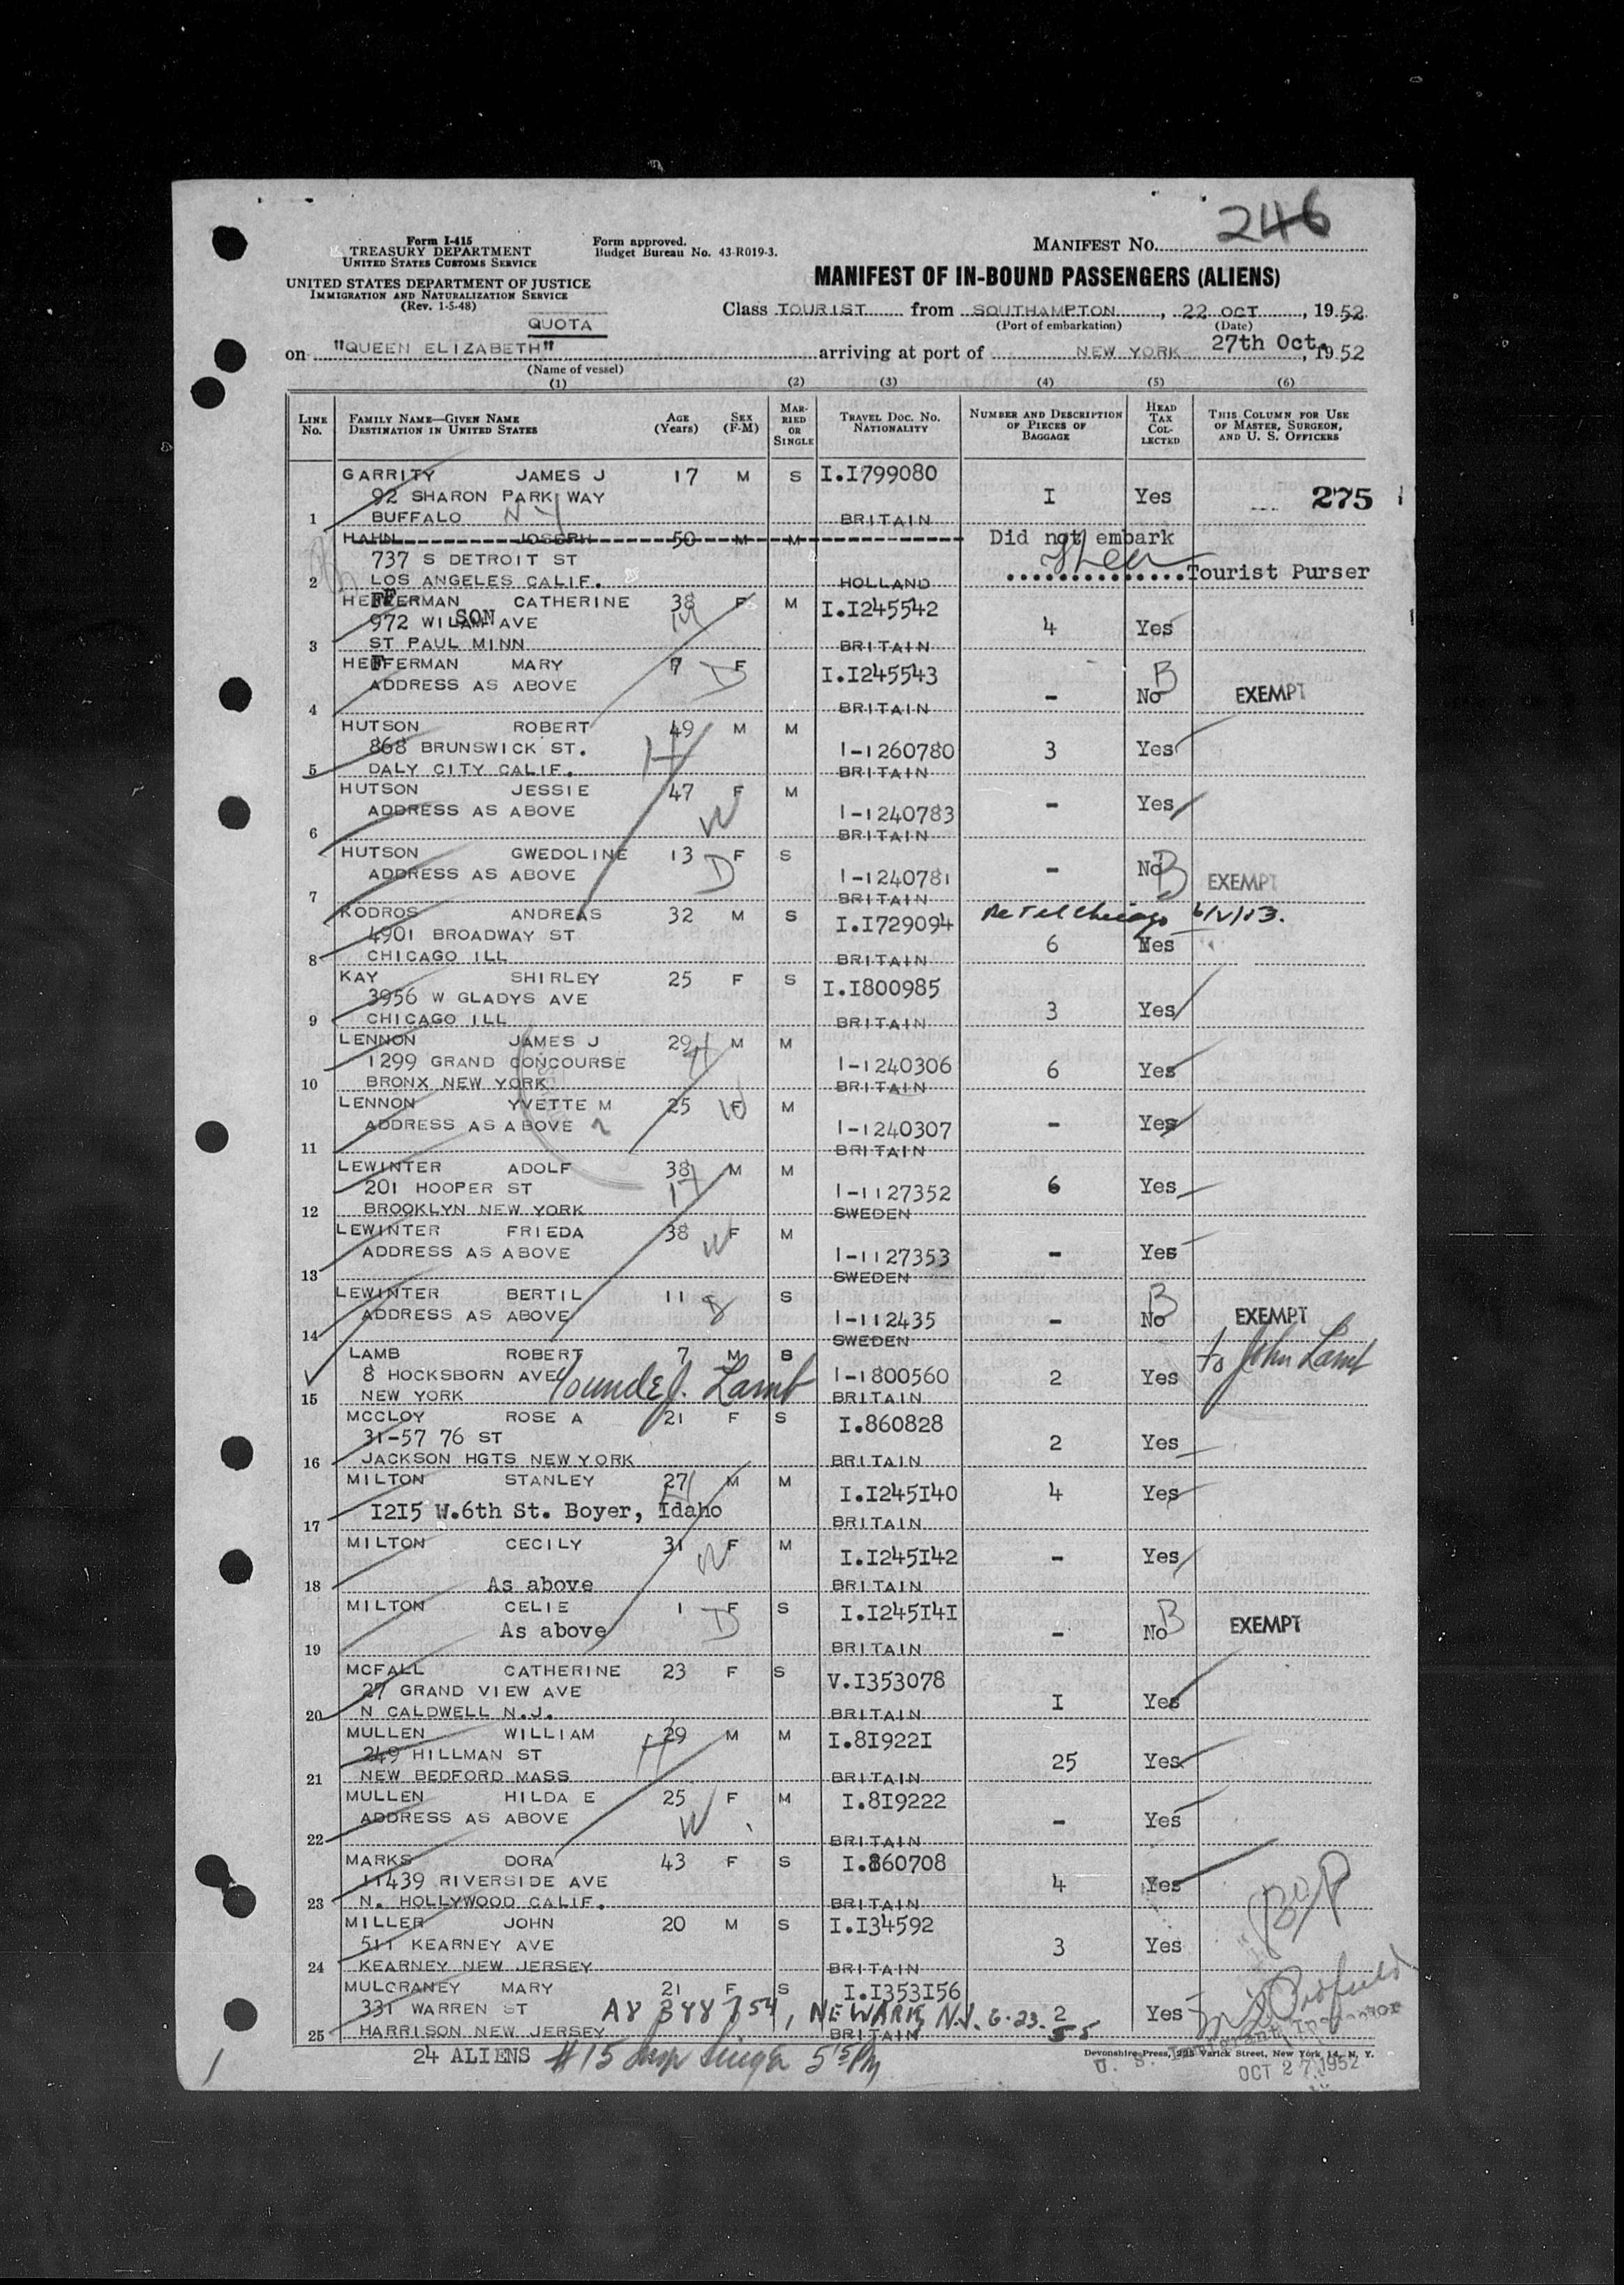 246
Form I-415
TREASURY DEPARTMENT
UNITED STATES CUSTOMS SERVICE
Form approved.
Budget Bureau No. 43-R019-3.
MANIFEST No.
UNITED STATES DEPARTMENT OF JUSTICE
IMMIGRATION AND NATURALIZATION SERVICE
(Rev. 1-5-48)
MANIFEST OF IN-BOUND PASSENGERS (ALIENS)
QUOTA
Class TOURIST from SOUTHAMPTON, 22 OCT, 1952
(Port of embarkation) (Date)
on "QUEEN ELIZABETH" arriving at port of NEW YORK 27th Oct., 1952
(Name of vessel)
(1) (2) (3) (4) (5) (6)
LINE No. FAMILY NAME—GIVEN NAME DESTINATION IN UNITED STATES AGE (Years) SEX (F-M) MARRIED OR SINGLE TRAVEL DOC. No. NATIONALITY NUMBER AND DESCRIPTION OF PIECES OF BAGGAGE HEAD TAX COLLECTED THIS COLUMN FOR USE OF MASTER, SURGEON, AND U. S. OFFICERS
GARRITY JAMES J 17 M S I.I799080
92 SHARON PARK WAY I Yes 275
1 BUFFALO N Y BRITAIN
HAHN JOSEPH 50 M M Did not embark
737 S DETROIT ST
2 LOS ANGELES CALIF. HOLLAND Tourist Purser
HEFFERMAN CATHERINE 38 F M I.I245542
972 WILSON AVE 4 Yes
3 ST PAUL MINN BRITAIN
HEFFERMAN MARY 7 F D I.I245543
ADDRESS AS ABOVE - No B EXEMPT
4 BRITAIN
HUTSON ROBERT 49 M M
868 BRUNSWICK ST. H I-1260780 3 Yes
5 DALY CITY CALIF. BRITAIN
HUTSON JESSIE 47 F M
ADDRESS AS ABOVE W I-1240783 - Yes
6 BRITAIN
HUTSON GWEDOLINE 13 F S
ADDRESS AS ABOVE D I-1240781 - No B EXEMPT
7 BRITAIN
KODROS ANDREAS 32 M S I.I729094
4901 BROADWAY ST 6 Yes
8 CHICAGO ILL BRITAIN
KAY SHIRLEY 25 F S I.I800985
3956 W GLADYS AVE 3 Yes
9 CHICAGO ILL BRITAIN
LENNON JAMES J 29 H M M
1299 GRAND CONCOURSE I-1240306 6 Yes
10 BRONX NEW YORK BRITAIN
LENNON YVETTE M 25 W F M
ADDRESS AS ABOVE 2 I-1240307 - Yes
11 BRITAIN
LEWINTER ADOLF 38 M M
201 HOOPER ST H I-1127352 6 Yes
12 BROOKLYN NEW YORK SWEDEN
LEWINTER FRIEDA 38 F M
ADDRESS AS ABOVE W I-1127353 - Yes
13 SWEDEN
LEWINTER BERTIL 11 S
ADDRESS AS ABOVE I-112435 - No B EXEMPT
14 SWEDEN
LAMB ROBERT 7 M S to John Lamb
8 HOCKSBORN AVE Lamb I-1800560 2 Yes
15 NEW YORK BRITAIN
MCCLOY ROSE A 21 F S I.860828
31-57 76 ST 2 Yes
16 JACKSON HGTS NEW YORK BRITAIN
MILTON STANLEY 27 H M M I.I245I40 4 Yes
I2I5 W.6th St. Boyer, Idaho
17 BRITAIN
MILTON CECILY 31 F M
W I.I245I42 - Yes
18 As above BRITAIN
MILTON CELIE 1 F S I.I245I4I
As above D - No B EXEMPT
19 BRITAIN
MCFALL CATHERINE 23 F S V.I353078
27 GRAND VIEW AVE I Yes
20 N CALDWELL N.J. BRITAIN
MULLEN WILLIAM 29 M M I.8I922I
249 HILLMAN ST H 25 Yes
21 NEW BEDFORD MASS BRITAIN
MULLEN HILDA E 25 F M I.8I9222
ADDRESS AS ABOVE W - Yes
22 BRITAIN
MARKS DORA 43 F S I.860708
11439 RIVERSIDE AVE 4 Yes
23 N. HOLLYWOOD CALIF. BRITAIN
MILLER JOHN 20 M S I.I34592
511 KEARNEY AVE 3 Yes
24 KEARNEY NEW JERSEY BRITAIN
MULCRANEY MARY 21 F S I.I353I56
331 WARREN ST A8 388 754, NEWARK, N.J. 6-23-55 2 Yes
25 HARRISON NEW JERSEY BRITAIN
U. S. Immigrant Inspector
24 ALIENS #15
Devonshire Press, 225 Varick Street, New York 14, N. Y.
OCT 27 1952